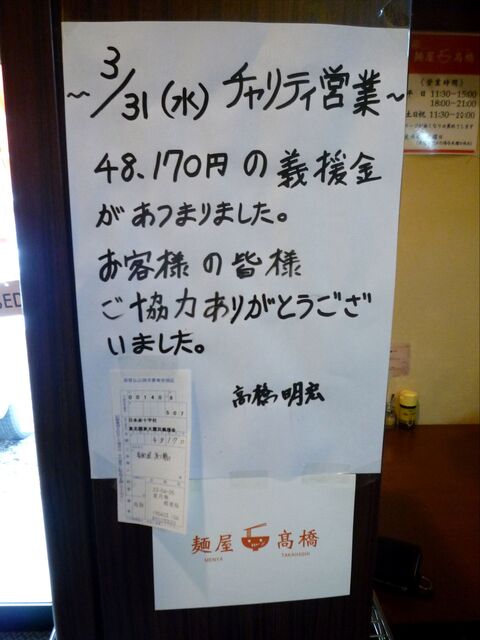 ~3/31(水) チャリティ営業~
48,170円の義援金
があつまりました。
お客様の皆様
ご協力ありがとうござ
いました。
高橋 明宏
00140 8
507
日本赤十字社
東北関東大震災義援金
48170
麺屋 高橋
MENYA TAKAHASHI
麺屋 高橋
(営業時間)
平 日 11:30~15:00
18:00~21:00
土日祝 11:30~21:00